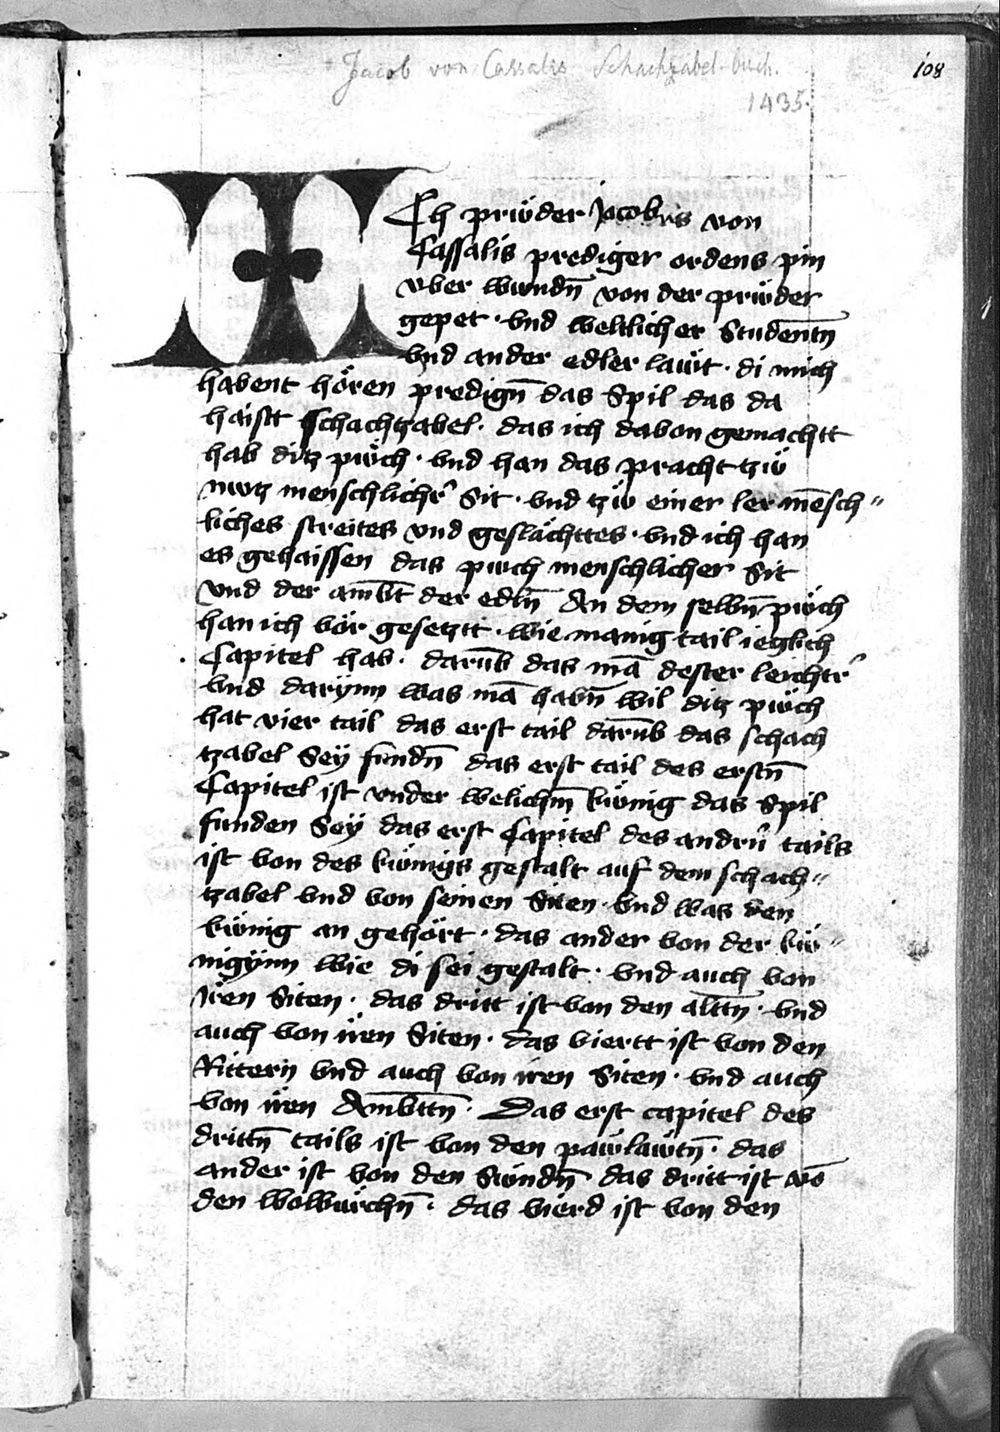 Jacob von Cassalis Schachzabel-buch.
108
1435.
ICh prüder Jacobus von
Cassalis prediger ordens pin
vber wundn̄ von der prüder
gepet · vnd weltlicher Studentn̄
vnd ander edler laüt · di mich
habent hören predign̄ das Spil das da
haistt schachtzabel · das ich dauon gemachtt
hab ditz püch · vnd han das pracht tzü
nutz menschlichr̉ Sit · vnd tzü einer ler mēsch〃
liches streites vnd geslächttes · vnd ich han
es gehaissen das puch menschlicher Sit
vnd der am̄bt der edln̄ An dem selbn̄ püch
han ich vör gesetztt · wie manig tail ieglich
Capitel hab · darūb das mā dester leichtr̉
vnd darÿnn was mā habn̄ wil ditz püch
hat vier tail das erst tail darūb das schach
tzabel Seÿ fundn̄ das erst tail des erstn̄
Capitel ist vnder welichm̄ künig das Spil
funden Seÿ das erst Capitel des andrn̄ tails
ist von des künigs gestalt auf dem schach〃
tzabel vnd von seinen Siten · vnd was den
künig an gehört · das ander von der kü〃
nigÿnn wie di sei gestalt · vnd auch von
iren Siten · das dritt ist von den altn̄ · vnd
auch von iren Siten · das viertt ist von den
Rittern vnd auch von iren Siten · vnd auch
von iren Am̄bttn̄ · Das erst capitel des
drittn̄ tails ist von den paẅlawtn̄ · das
ander ist von den Smidn̄ das dritt ist vō
den wolwürchn̄ · das vierd ist von den